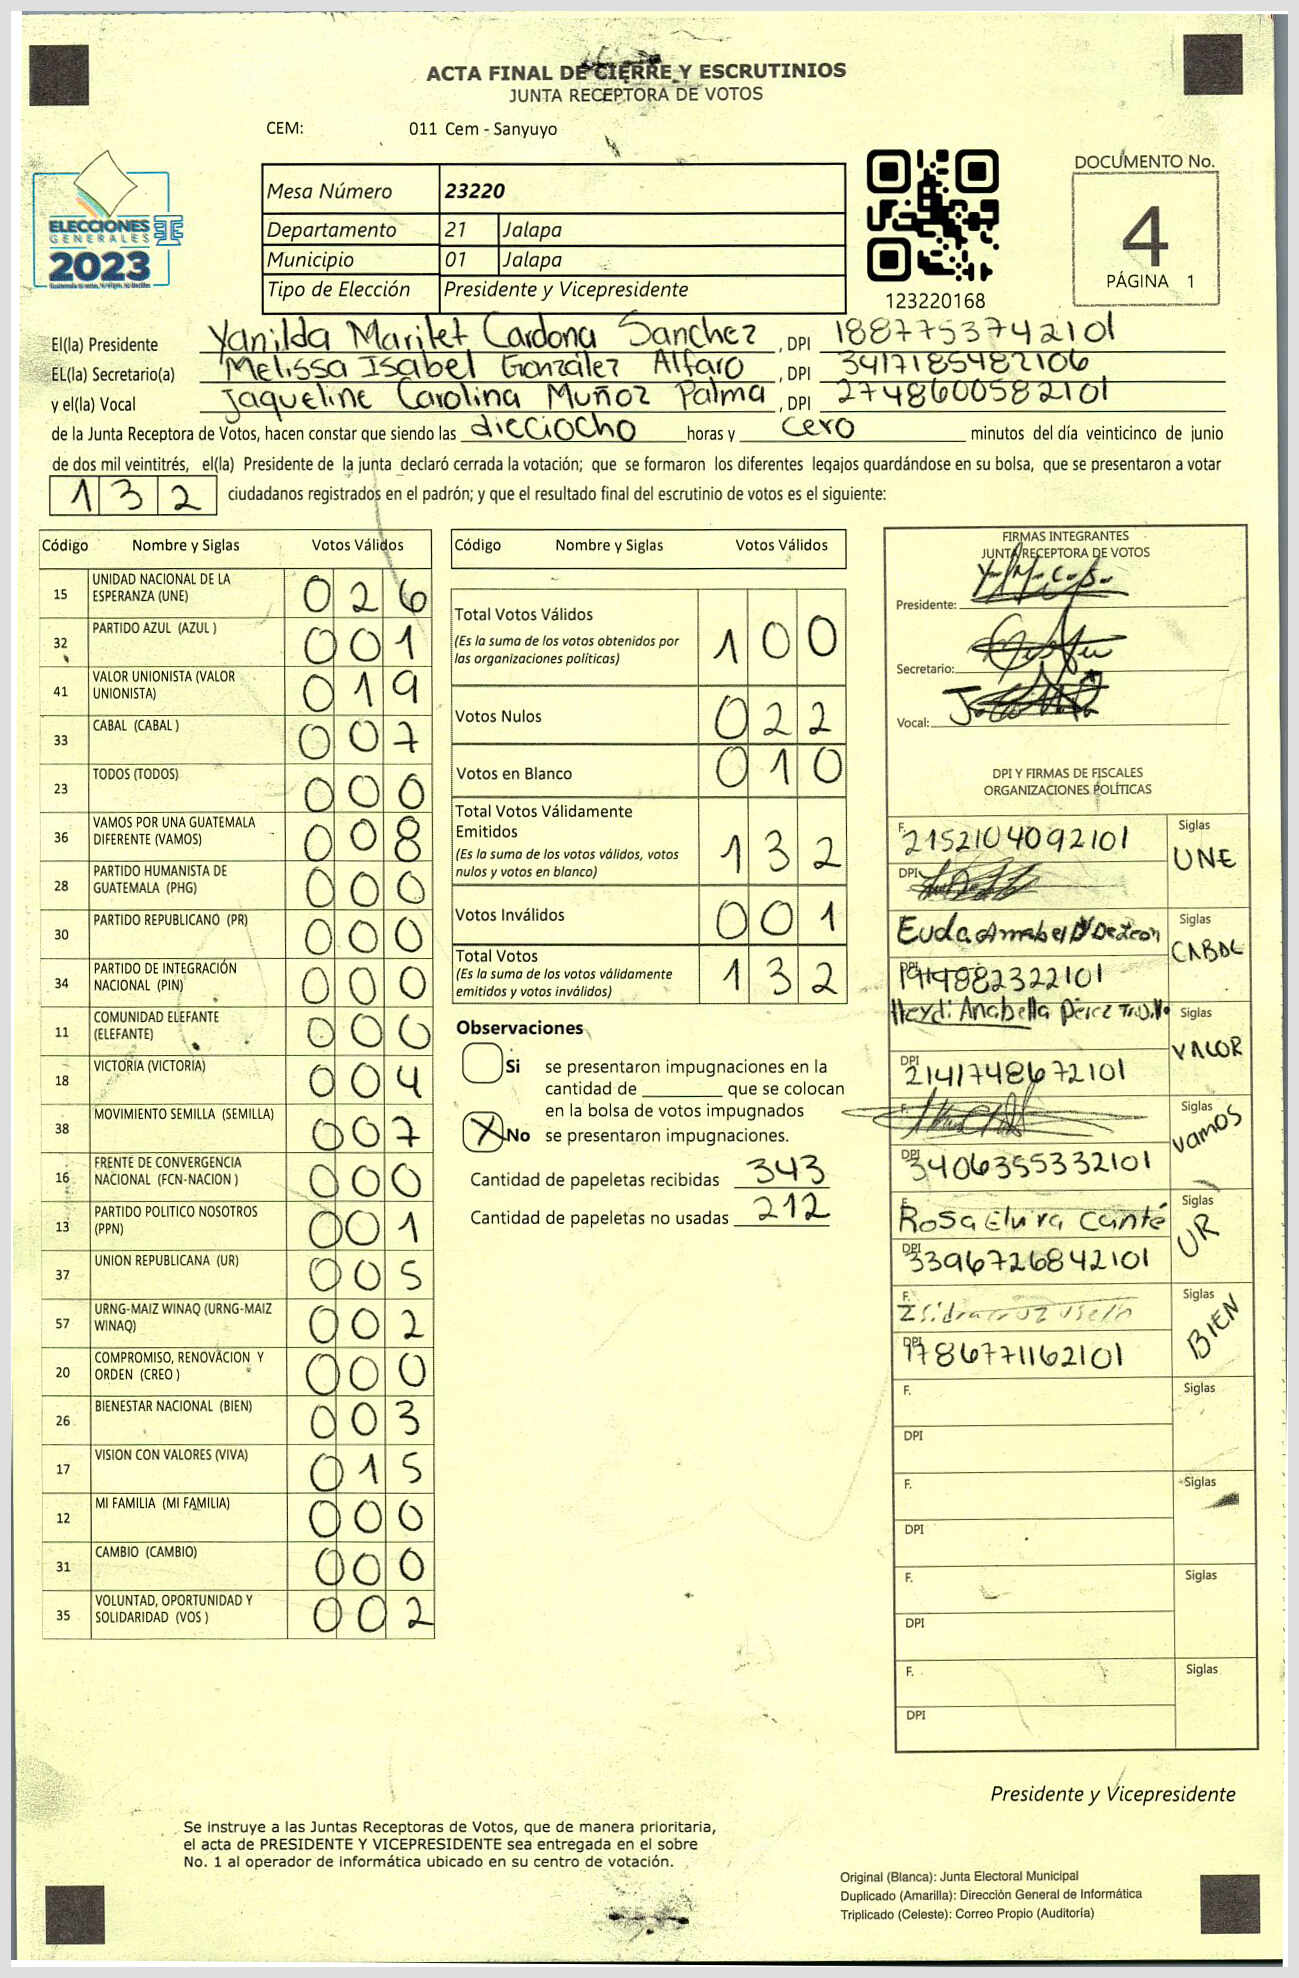 ACTA FINAL DE CIERRE Y ESCRUTINIOS
JUNTA RECEPTORA DE VOTOS
CEM: 011 Cem - Sanyuyo
ELECCIONES
GENERALES
2023
Mesa Número 23220
Departamento 21 Jalapa
Municipio 01 Jalapa
Tipo de Elección Presidente y Vicepresidente
123220168
DOCUMENTO No.
4
PÁGINA 1
El(la) Presidente Yanilda Marilet Cardona Sanchez, DPI 1887753742101
EL(la) Secretario(a) Melissa Isabel González Alfaro, DPI 3417185482106
y el(la) Vocal Jaqueline Carolina Muñoz Palma, DPI 2748600582101
de la Junta Receptora de Votos, hacen constar que siendo las dieciocho horas y cero minutos del día veinticinco de junio
de dos mil veintitrés, el(la) Presidente de la junta declaró cerrada la votación; que se formaron los diferentes legajos guardándose en su bolsa, que se presentaron a votar
132 ciudadanos registrados en el padrón; y que el resultado final del escrutinio de votos es el siguiente:
Código Nombre y Siglas Votos Válidos
15 UNIDAD NACIONAL DE LA ESPERANZA (UNE) 026
32 PARTIDO AZUL (AZUL ) 001
41 VALOR UNIONISTA (VALOR UNIONISTA) 019
33 CABAL (CABAL ) 007
23 TODOS (TODOS) 000
36 VAMOS POR UNA GUATEMALA DIFERENTE (VAMOS) 008
28 PARTIDO HUMANISTA DE GUATEMALA (PHG) 000
30 PARTIDO REPUBLICANO (PR) 000
34 PARTIDO DE INTEGRACIÓN NACIONAL (PIN) 000
11 COMUNIDAD ELEFANTE (ELEFANTE) 000
18 VICTORIA (VICTORIA) 004
38 MOVIMIENTO SEMILLA (SEMILLA) 007
16 FRENTE DE CONVERGENCIA NACIONAL (FCN-NACION ) 000
13 PARTIDO POLITICO NOSOTROS (PPN) 001
37 UNION REPUBLICANA (UR) 005
57 URNG-MAIZ WINAQ (URNG-MAIZ WINAQ) 002
20 COMPROMISO, RENOVACION Y ORDEN (CREO ) 000
26 BIENESTAR NACIONAL (BIEN) 003
17 VISION CON VALORES (VIVA) 015
12 MI FAMILIA (MI FAMILIA) 000
31 CAMBIO (CAMBIO) 000
35 VOLUNTAD, OPORTUNIDAD Y SOLIDARIDAD (VOS ) 002
Código Nombre y Siglas Votos Válidos
Total Votos Válidos 100
(Es la suma de los votos obtenidos por las organizaciones políticas)
Votos Nulos 022
Votos en Blanco 010
Total Votos Válidamente Emitidos 132
(Es la suma de los votos válidos, votos nulos y votos en blanco)
Votos Inválidos 001
Total Votos 132
(Es la suma de los votos válidamente emitidos y votos inválidos)
Observaciones
Si se presentaron impugnaciones en la
cantidad de ________ que se colocan
en la bolsa de votos impugnados
X No se presentaron impugnaciones.
Cantidad de papeletas recibidas 343
Cantidad de papeletas no usadas 212
FIRMAS INTEGRANTES
JUNTA RECEPTORA DE VOTOS
Presidente:
Secretario:
Vocal:
DPI Y FIRMAS DE FISCALES
ORGANIZACIONES POLÍTICAS
F. 2152104092101 Siglas UNE
DPI
Euda Anabel D De Leon Siglas CABAL
DPI 1914982322101
Heydi Anabella Pérez Siglas VALOR
DPI 2141748672101
F. Siglas vamos
DPI 3406355332101
F. Rosa Elvira Canté Siglas UR
DPI 3396726842101
F. Siglas BIEN
DPI 1786771162101
F. Siglas
DPI
F. Siglas
DPI
F. Siglas
DPI
F. Siglas
DPI
Presidente y Vicepresidente
Se instruye a las Juntas Receptoras de Votos, que de manera prioritaria,
el acta de PRESIDENTE Y VICEPRESIDENTE sea entregada en el sobre
No. 1 al operador de informática ubicado en su centro de votación.
Original (Blanca): Junta Electoral Municipal
Duplicado (Amarilla): Dirección General de Informática
Triplicado (Celeste): Correo Propio (Auditoría)